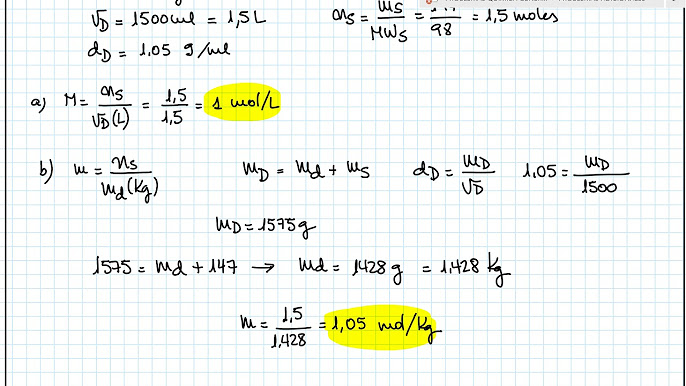 VD = 1500 ml = 1,5 L
nS = mS/MWS = /98 = 1,5 moles
dD = 1,05 g/ml
a) M = nS/VD(L) = 1,5/1,5 = 1 mol/L
b) m = nS/md(Kg) mD = md + mS dD = mD/VD 1,05 = mD/1500
mD = 1575 g
1575 = md + 147 → md = 1428 g = 1,428 kg
m = 1,5/1,428 = 1,05 mol/Kg